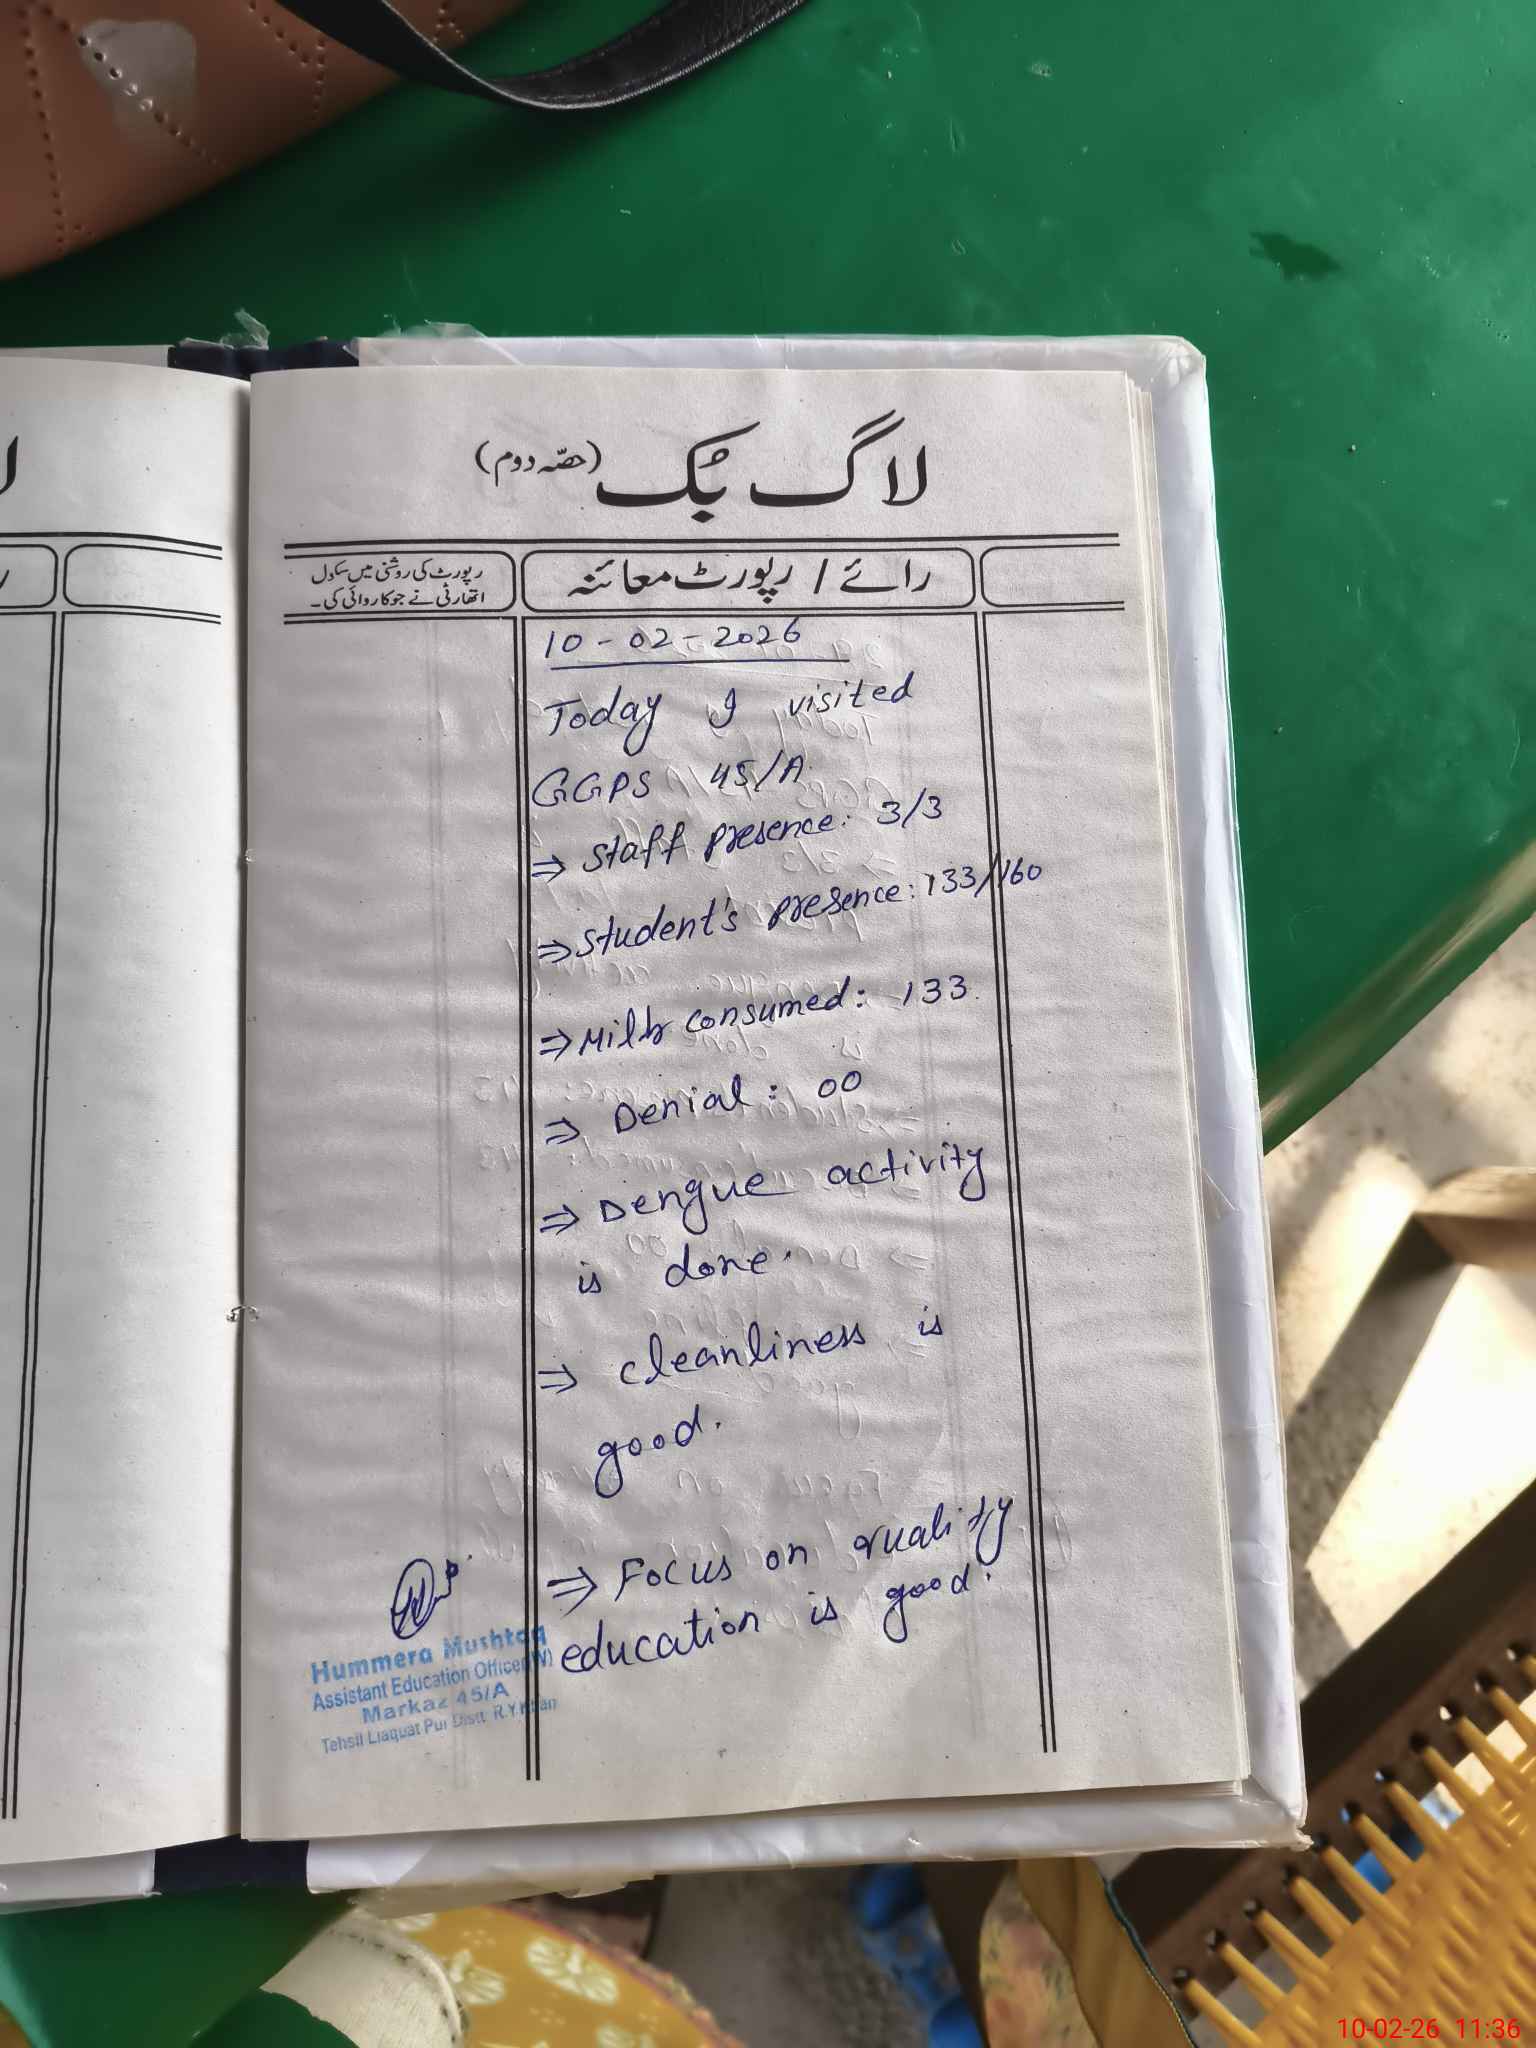 لاگ بُک (حصّہ دوم)
رائے / رپورٹ معائنہ
رپورٹ کی روشنی میں سکول
اتھارٹی نے جو کاروائی کی۔
10-02-2026
Today I visited
GGPS 45/A
⇒ Staff presence: 3/3
⇒ Student's presence: 133/160
⇒ Milk consumed: 133
⇒ Denial: 00
⇒ Dengue activity
is done.
⇒ cleanliness is
good.
⇒ Focus on quality
education is good.
Hummera Mushtaq
Assistant Education Officer(W)
Markaz 45/A
Tehsil Liaquat Pur Distt R.Y.Khan
10-02-26 11:36